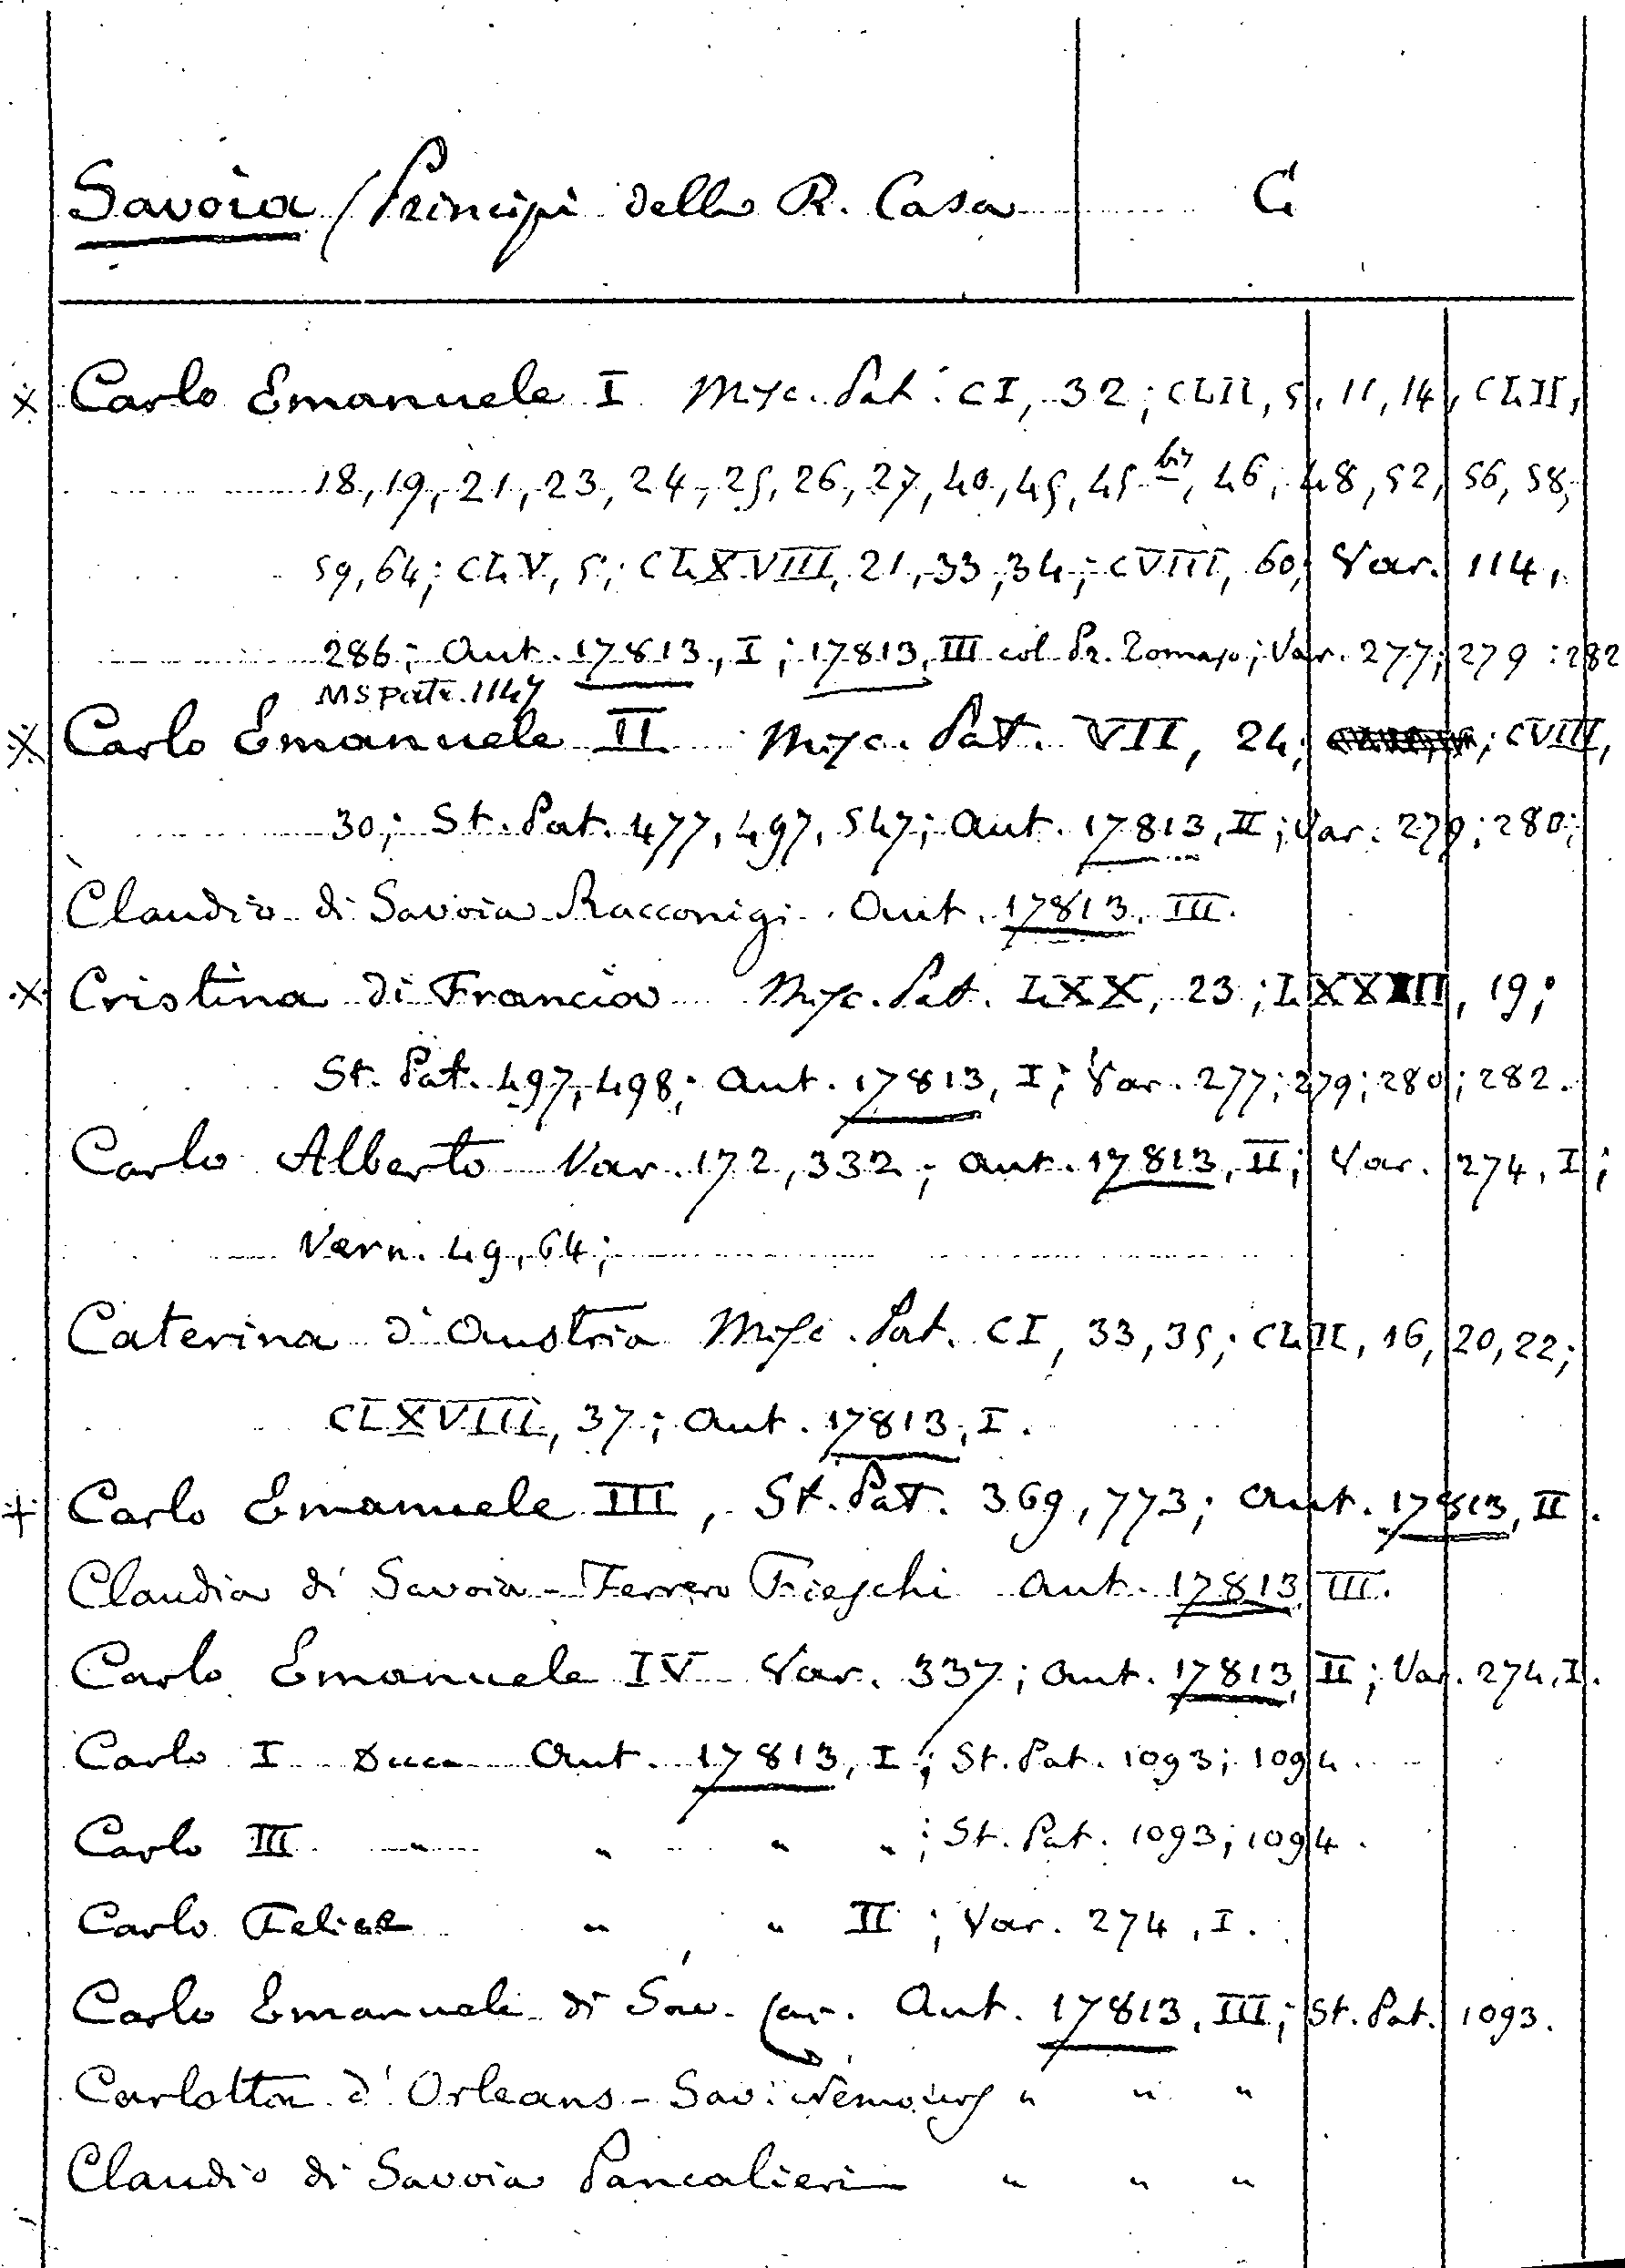 Savoia (Principi della R. Casa C
× Carlo Emanuele I Misc. Pat. CI, 32; CLII, 5, 11, 14, CLII,
18, 19, 21, 23, 24, 25, 26, 27, 40, 45, 45 bis, 46, 48, 52, 56, 58,
59, 64; CLV, 5; CLXVIII, 21, 33, 34; CVIII, 60; Var. 114,
286; Aut. 17813, I; 17813, III col Pr. Tomaso; Var. 277; 279; 282
MS patr. 1147
× Carlo Emanuele II Misc. Pat. VII, 24; ; CVIII,
30; St. Pat. 477, 497, 547; Aut. 17813, II; Var. 279; 280;
Claudio di Savoia Racconigi. Aut. 17813, III.
× Cristina di Francia Misc. Pat. LXX, 23; , 19;
St. Pat. 497, 498; Aut. 17813, I; Var. 277; 279; 280; 282.
Carlo Alberto Var. 172, 332; Aut. 17813, II; Var. 274, I;
Vern. 49, 64;
Caterina d'Austria Misc. Pat. CI, 33, 35; CLII, 16, 20, 22;
CLXVIII, 37; Aut. 17813, I.
+ Carlo Emanuele III, St. Pat. 369, 773; Aut. 17813, II.
Claudia di Savoia - Ferrero Fieschi Aut. 17813, III.
Carlo Emanuele IV Var. 337; Aut. 17813, II; Var. 274, I.
Carlo I Duca Aut. 17813, I; St. Pat. 1093; 1094.
Carlo III " " " "; St. Pat. 1093; 1094.
Carlo Felice " " II; Var. 274, I.
Carlo Emanuele di Sav. Car. Aut. 17813, III; St. Pat. 1093.
Carlotta d'Orleans - Sav. Nemours " " "
Claudio di Savoia Pancalieri " " "